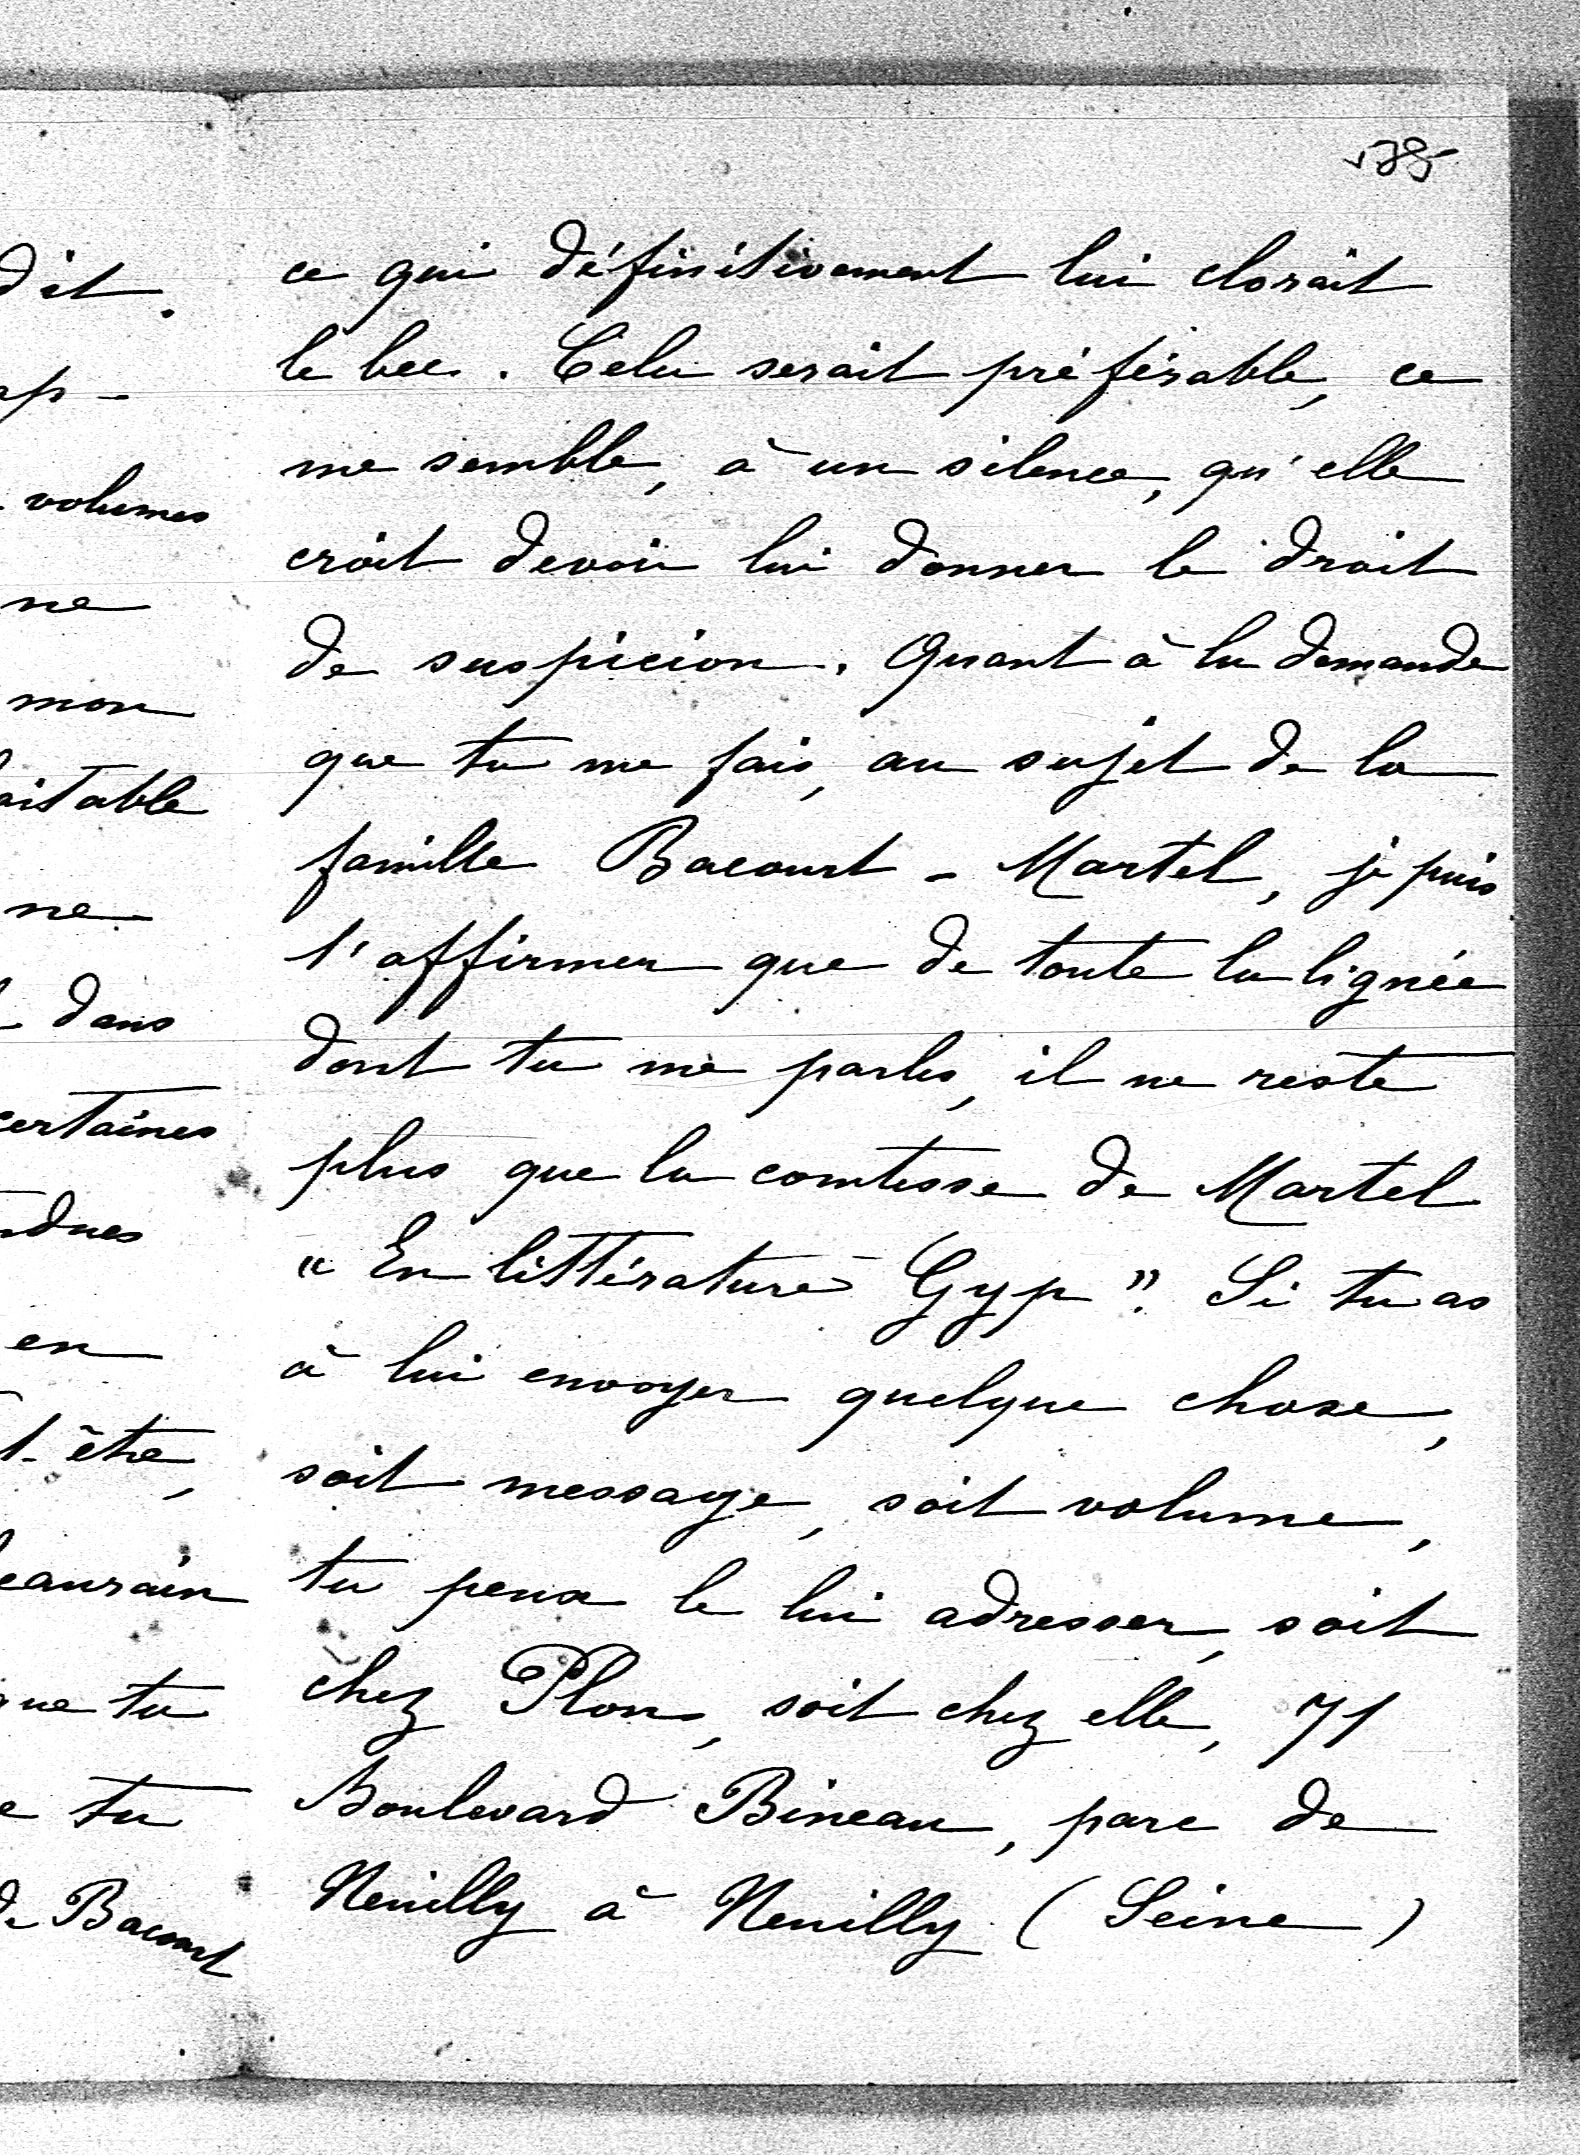 ce qui définitivement lui clorait
le bec. Cela serait préférable, ce
me semble, à un silence, qu'elle
croit devoir lui donner le droit
de suspicion. Quant à la demande
que tu me fais, au sujet de la
famille Bacourt - Martel, je puis
t'affirmer que de toute la lignée
dont tu me parles, il ne reste
plus que la comtesse de Martel
"En littérature Gyp". Si tu as
à lui envoyer quelque chose,
soit message, soit volume,
tu peux le lui adresser, soit
chez Plon, soit chez elle, 71
Boulevard Bineau, parc de
Neuilly à Neuilly (Seine)
dit.
volumes
ne
mon
ne
dans
certaines
en
être,
tu
tu
de Bacourt